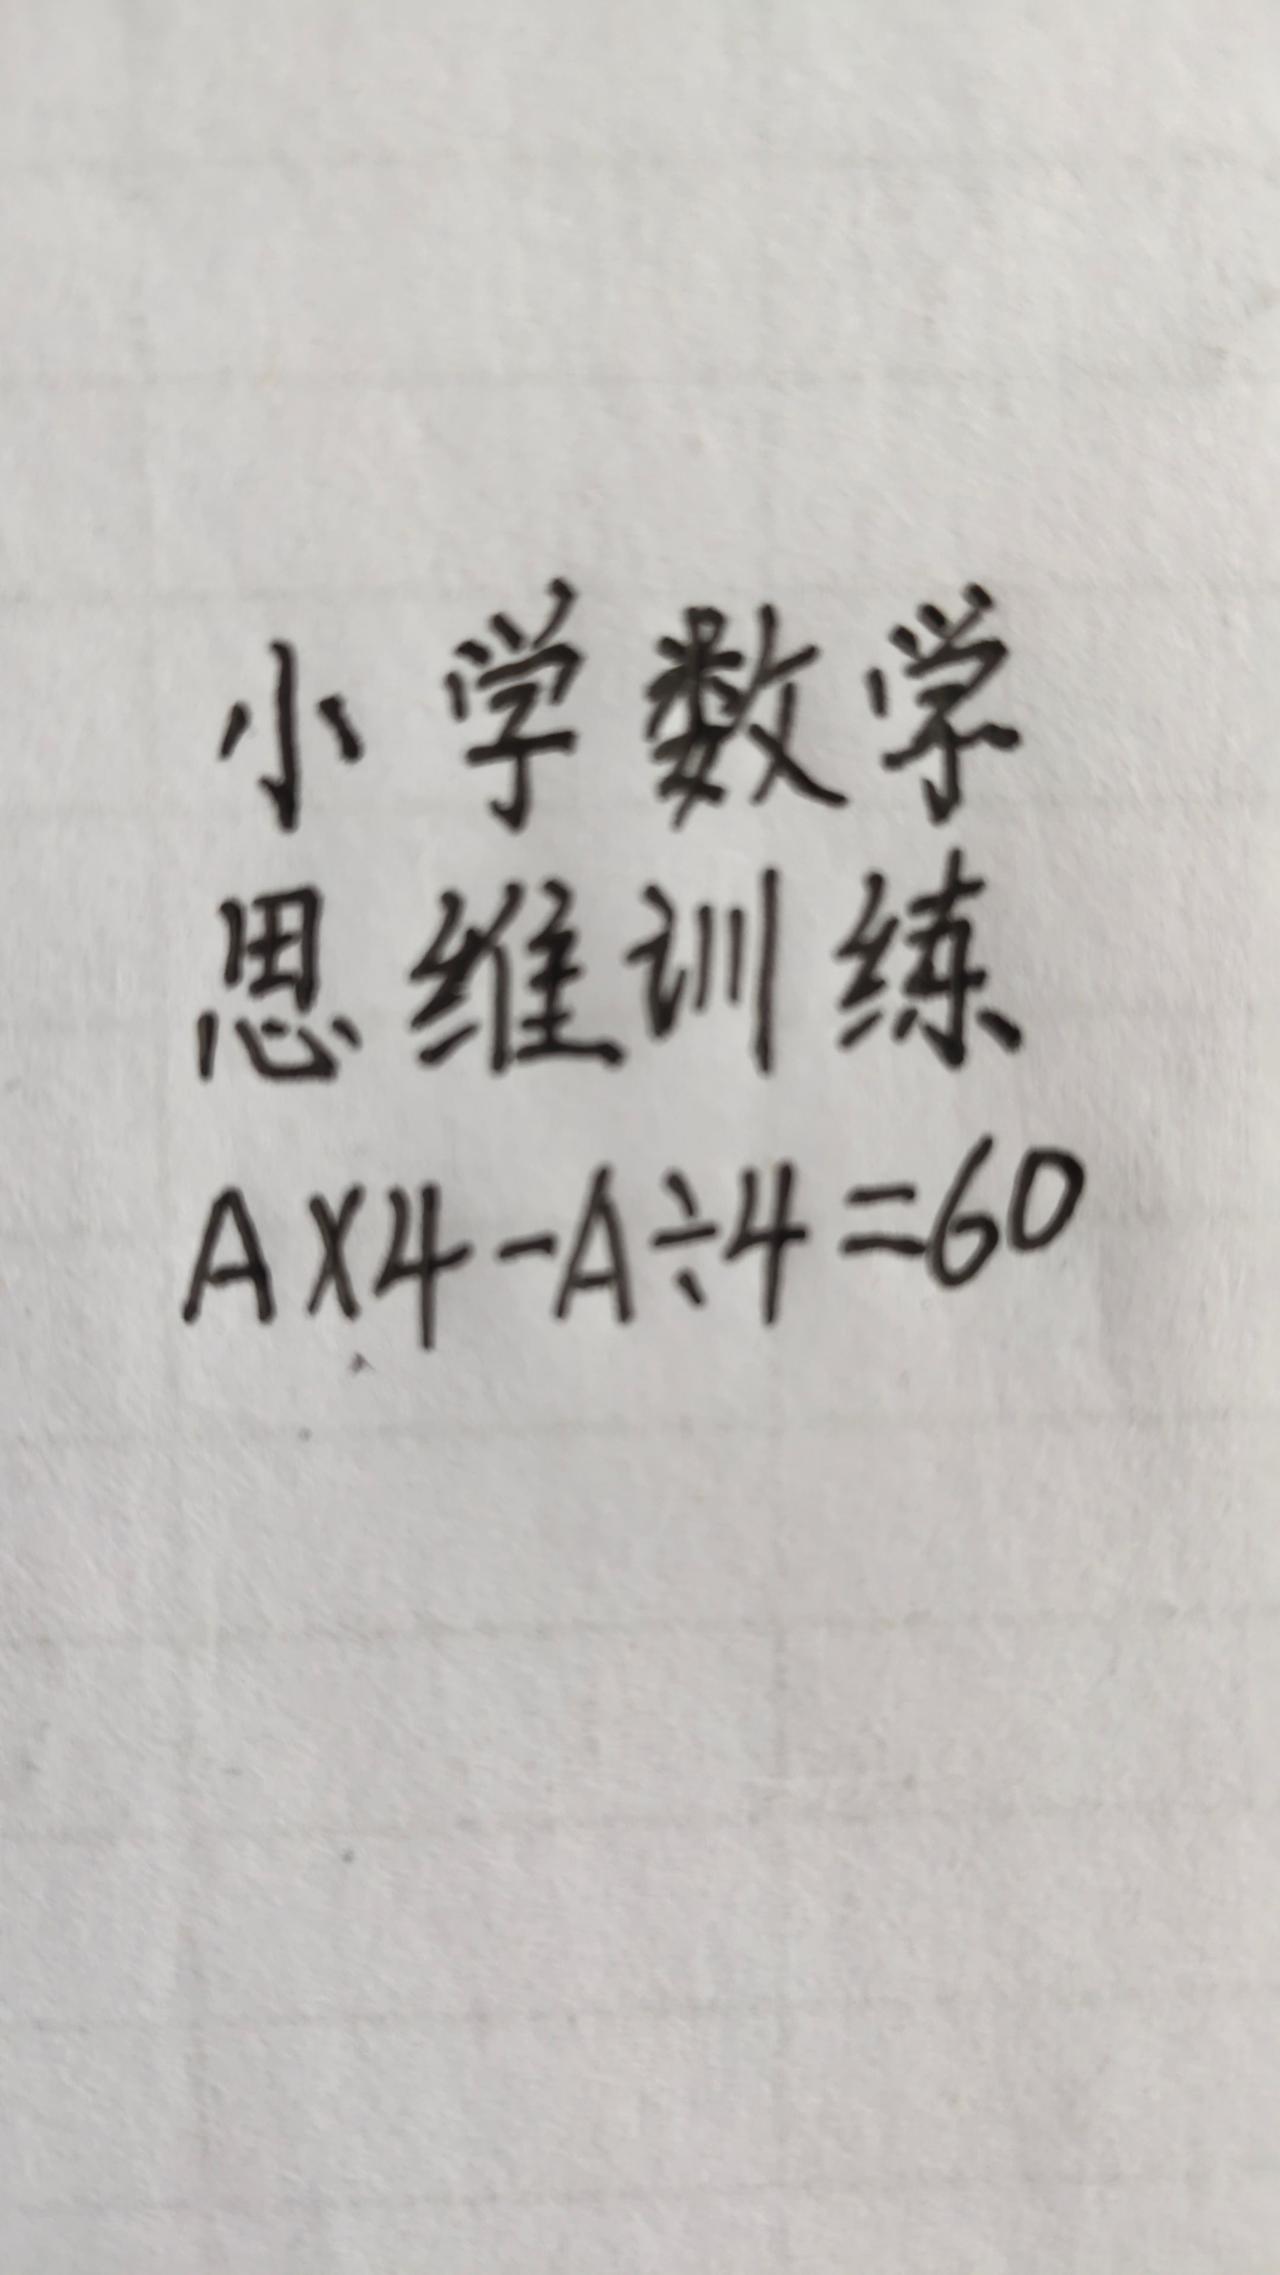 小学数学
思维训练
A×4-A÷4=60